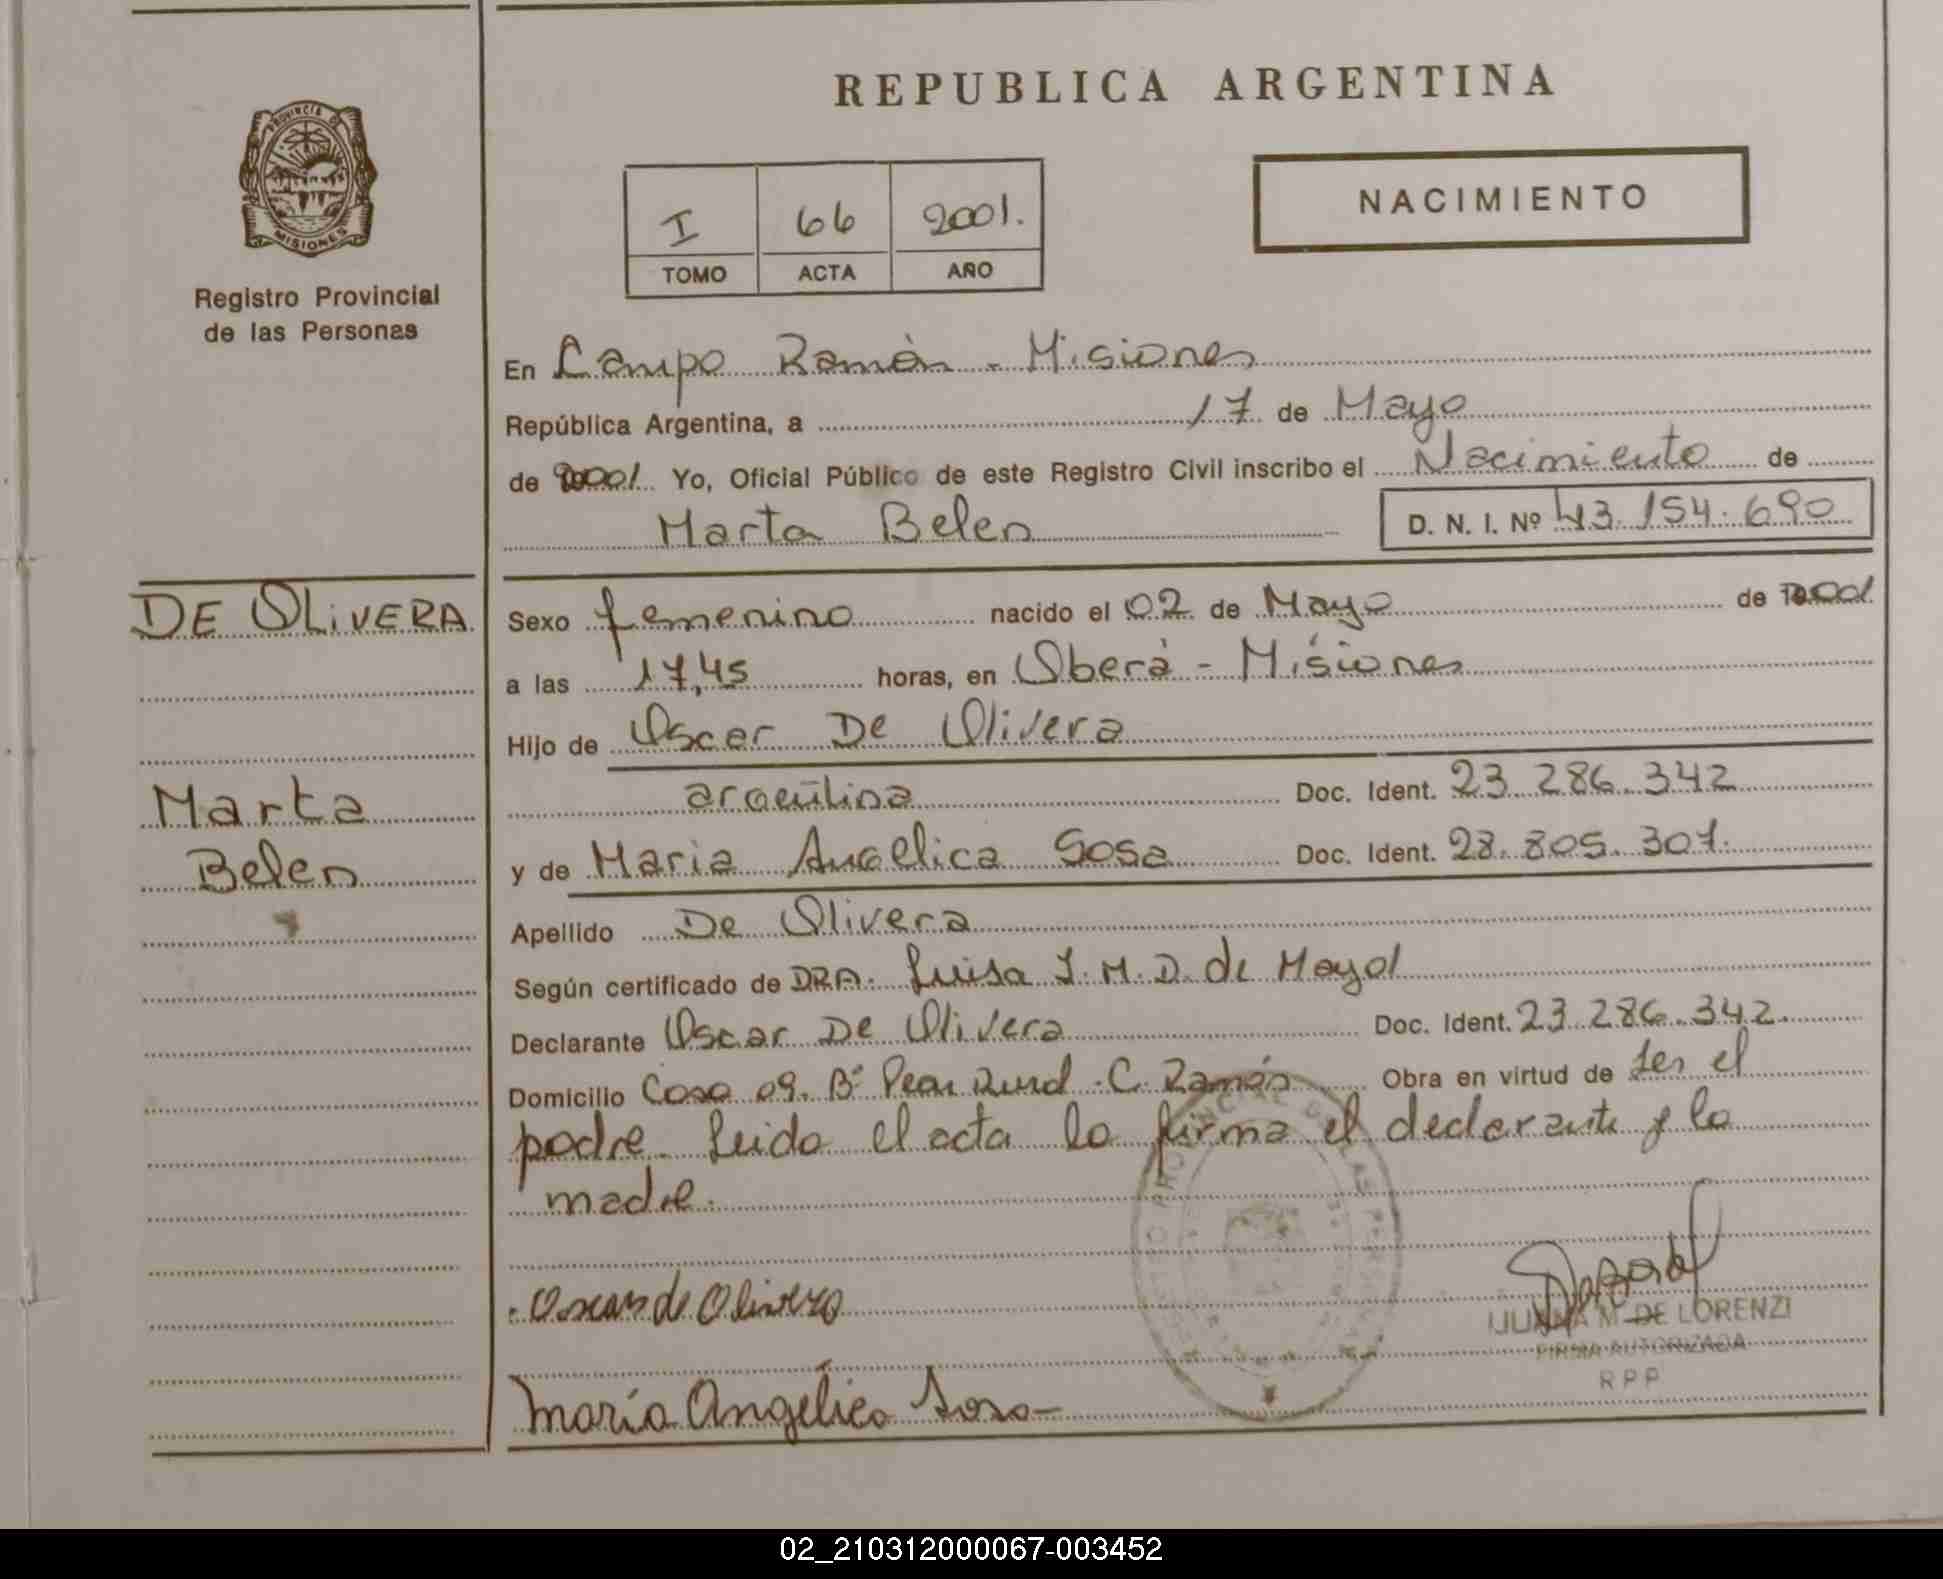 PROVINCIA DE
MISIONES
Registro Provincial
de las Personas
DE OLIVERA
Marta
Belen
REPUBLICA ARGENTINA
I 66 2001.
TOMO ACTA AÑO
NACIMIENTO
En Campo Ramón - Misiones
República Argentina, a 17 de Mayo
de 2001 Yo, Oficial Público de este Registro Civil inscribo el Nacimiento de
Marta Belen D. N. I. Nº 43.154.690
Sexo femenino nacido el 02 de Mayo de 2001
a las 17,45 horas, en Oberá - Misiones
Hijo de Oscar De Olivera
argentina Doc. Ident. 23.286.342
y de Maria Angelica Sosa Doc. Ident. 28.805.307.
Apellido De Olivera
Según certificado de DRA. Luisa I. M. D. de Mayol
Declarante Oscar De Olivera Doc. Ident. 23.286.342
Domicilio Casa 09. Bº C. Ramón Obra en virtud de ser el
padre. Leida el acta la firma el declarante y la
madre.
Oscar de Olivera
M. DE LORENZI
FIRMA AUTORIZADA
RPP
María Angélica Sosa
02_210312000067-003452